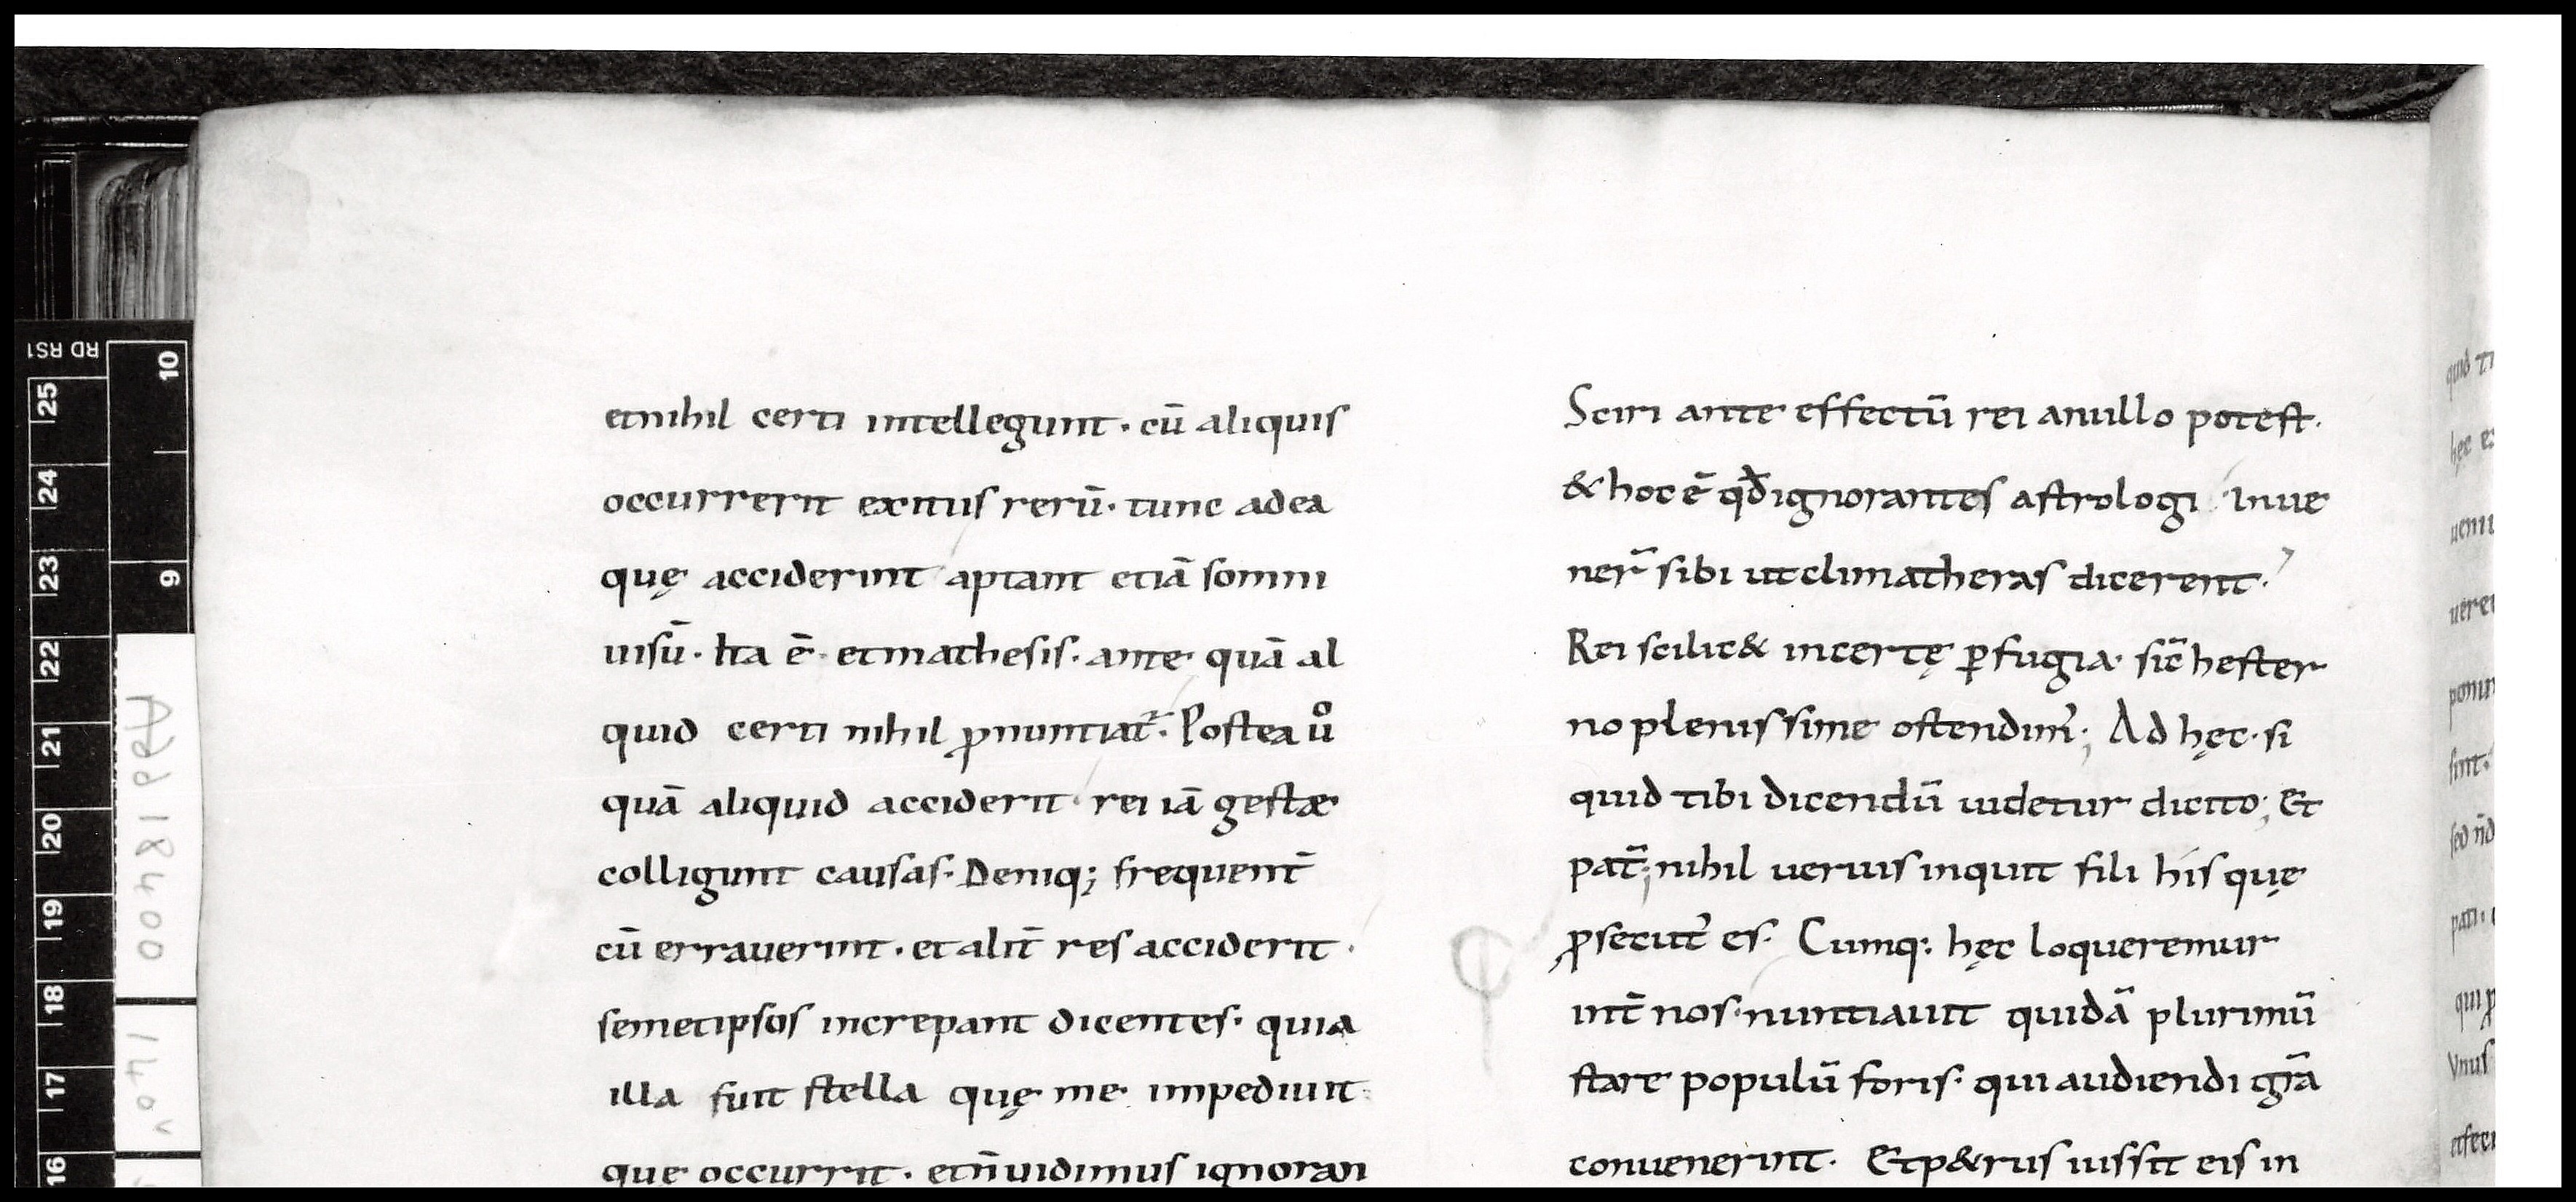 etnihil certi intellegunt · cū aliquis
occurrerit exitus rerū · tunc adea
quę acciderint aptant etiā somni
uisū · Ita ē · etmathesis · ante quā al
quid certi nihil ꝓnuntiat᷑ · Postea uͦ
quā aliquid acciderit · rei iā gestæ
colligunt causas · Deniq; frequent̄
cū errauerint · et alit̄ res acciderit ·
semetipsos increpant dicentes · quia
illa fuit stella quę me impediuit
que occurrit · etn̄uidimus ignoran
Sciri ante effectū rei anullo potest ·
& hoc ē qđ ignorantes astrologi Inue
ner̄ sibi utclimatheras dicerent ·
Rei scilic& incertę ꝑfugia · sic̄ hester
no plenissime ostendim̓ ; Ad hęc · si
quid tibi dicendū uidetur dicito ; Et
pat̄ ; nihil uerius inquit fili his quę
ꝓsecut̓ es · Cumq: hęc loqueremur
int̄ nos · nuntiauit quidā plurimū
stare populū foris · qui audiendi gr̄a
conuenerint · Etp&rus iussit eis in
RD RS1
10
9
25
24
23
22
21
20
19
18
17
16
Add 18400
140v